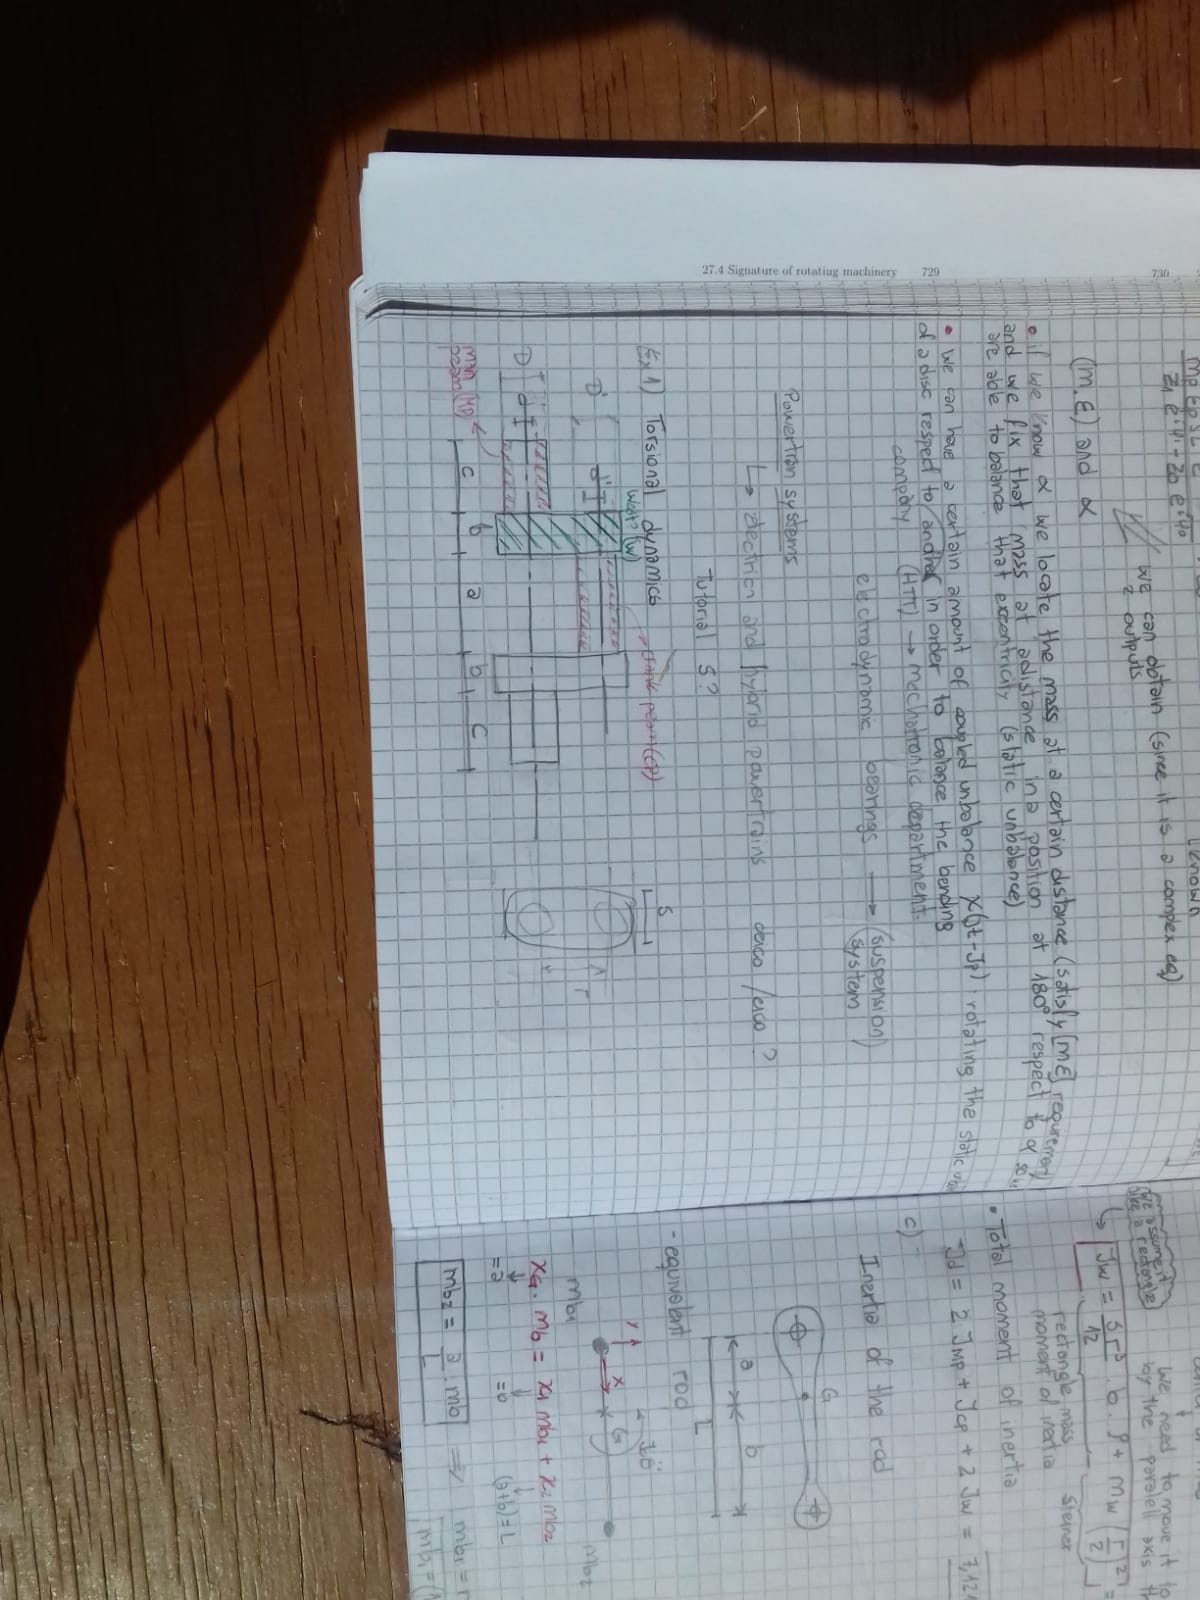 Z₁ e^iφ₁ - Z₀ e^iφ₀
(known
we can obtain (since it is a complex eq)
2 outputs
(m.ε) and α
• if we know α we locate the mass at a certain distance (satisfy [mε] requirement
and we fix that mass at adistance in a position at 180° respect to α so
are able to balance that excentricity (static unbalance)
• we can have a certain amount of coupled unbalance X(Jt-Jp) rotating the static
of a disc respect to another in order to balance the bending
company (HTT) → mechatronic department.
electrodynamic bearings → (suspension system)
Powertran systems
↳ electrion and hybrid powertrains
Tutorial 5?
Ex 1) Torsional dynamics
(w)
(CP)
S
D'
d'
r
D
d
(MP)
c b a b c
27.4 Signature of rotating machinery 729
730
we need to move it to
by the paralell axis
we assume it
like a rectangle
↳ Jw = Sr³/12 . b . ρ + mw (r/2)² =
rectangle mass
moment of inertia
Steiner
• Total moment of inertia
Jd = 2 Jmp + Jcp + 2 Jw = 7,121
c)
Inertia of the rod
G
a b
L
- equivalent rod
y
x
G
mb₁
mb₂
xG . mb = x₁ mb₁ + x₂ mb₂
=a
=0
(a+b)=L
mb₂ = a/L . mb ⇒ mb₁ =
mb₁ = (